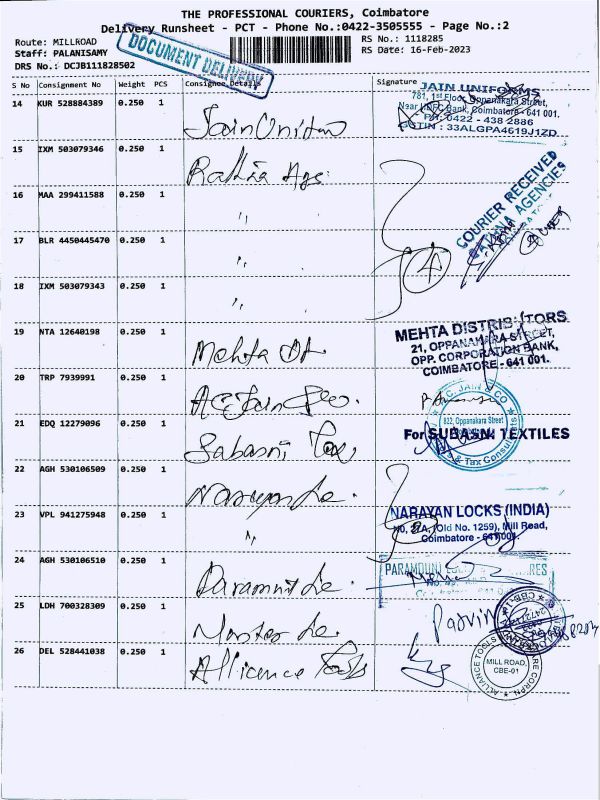 THE PROFESSIONAL COURIERS, Coimbatore
Delivery Runsheet - PCT - Phone No.:0422-3505555 - Page No.:2
Route: MILLROAD
Staff: PALANISAMY
DRS No.: DCJB111828502
DOCUMENT DELIVERY
RS No.: 1118285
RS Date: 16-Feb-2023
S No Consignment No Weight PCS Consignee Details Signature
14 KUR 528884389 0.250 1 Jain Uniform
JAIN UNIFORMS
781, 1st Floor, Oppanakara Street,
Near HDFC Bank, Coimbatore - 641 001.
PH: 0422 - 438 2886
GSTIN : 33ALGPA4619J1ZD
15 IXM 503079346 0.250 1
COURIER RECEIVED
AGENCIES
16 MAA 299411588 0.250 1 "
17 BLR 4450445470 0.250 1 "
4
18 IXM 503079343 0.250 1 "
19 NTA 12640198 0.250 1 Mehta Dt
MEHTA DISTRIBUTORS
21, OPPANAKARA STREET,
OPP. CORPORATION BANK,
COIMBATORE - 641 001.
20 TRP 7939991 0.250 1
JAIN & CO
822, Oppanakara Street
& Tax Consultants
21 EDQ 12279096 0.250 1 Sabasni Tex
For SUBASNI TEXTILES
22 AGH 530106509 0.250 1 Narayan Lo
23 VPL 941275948 0.250 1 "
NARAYAN LOCKS (INDIA)
(Old No. 1259), Mill Road,
Coimbatore - 641 001.
24 AGH 530106510 0.250 1
PARAMOUNT
25 LDH 700328309 0.250 1
CBE-1
26 DEL 528441038 0.250 1 Alliance Tools
ALLIANCE TOOLS
MILL ROAD,
CBE-01